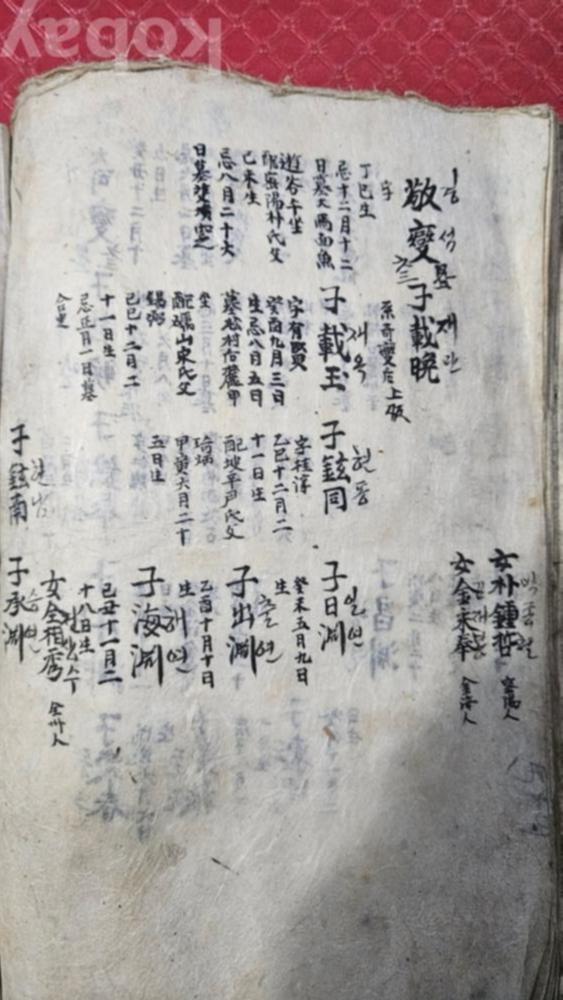 kobay
敬燮
경섭
字
丁巳生
忌十二月十二
日墓大馬面魚
遊谷午坐
配密陽朴氏父
己未生
忌八月二十六
日墓雙墳
子載晚
재만
系奇燮后上及
子載玉
재옥
字有賢
癸酉九月三日
生忌八月五日
墓松村
坐
配礪山宋氏父
錫弼
己巳十二月二
十一日生
忌正月一日墓
合
子鉉同
현동
字桂淳
乙巳十二月二
十一日生
配坡平尹氏父
琦瑞
甲寅六月二十
五日生
子鉉南
현남
女朴鍾哲
박종철
密陽人
女金永奉
金海人
子日淵
일연
癸未五月九日
生
子出淵
출연
乙酉十月十日
生
子海淵
해연
己丑十一月二
十八日生
女全相秀
전상수
全州人
子承淵
승연